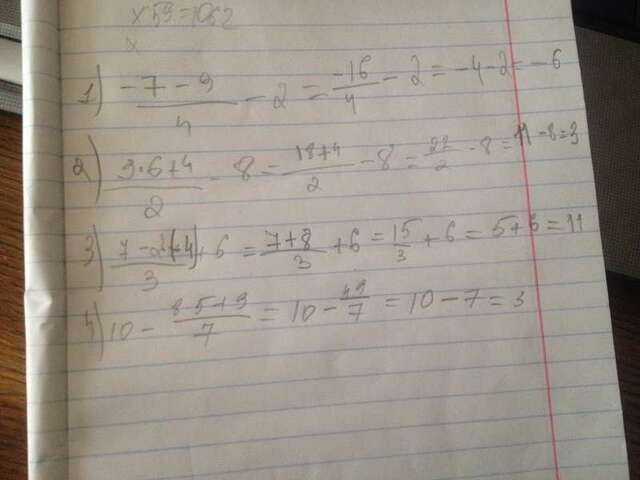 x59=1062
x
1) (-7-9)/4 - 2 = -16/4 - 2 = -4-2 = -6
2) (3·6+4)/2 - 8 = (18+4)/2 - 8 = 22/2 - 8 = 11-8=3
3) (7-2(-4))/3 + 6 = (7+8)/3 + 6 = 15/3 + 6 = 5+6=11
4) 10 - (8·5+9)/7 = 10 - 49/7 = 10-7=3